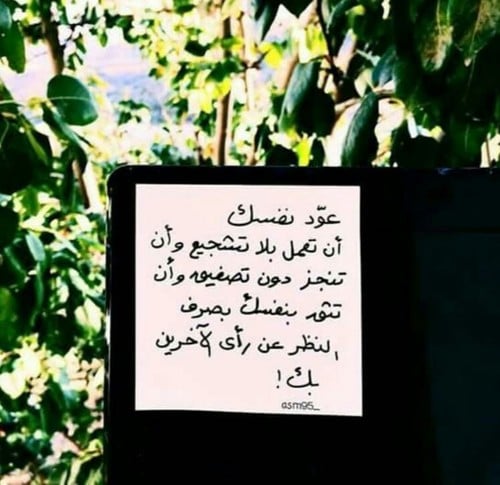 عوّد نفسك
أن تعمل بلا تشجيع وأن
تنجز دون تصفيق وأن
تثق بنفسك بصرف
النظر عن رأى الآخرين
بك!
asm95_